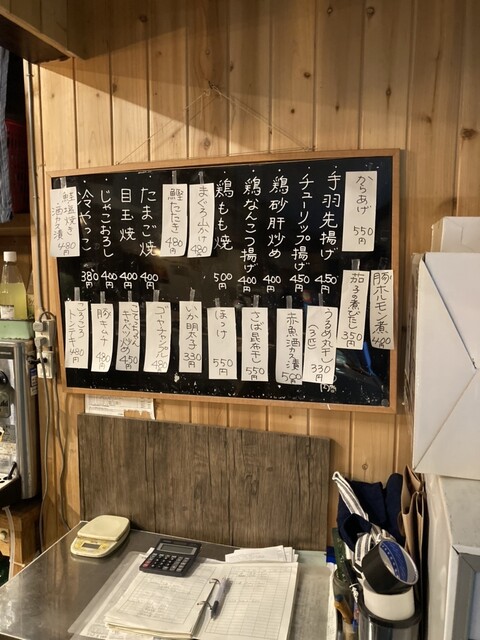 からあげ 550
手羽先揚げ 450
チューリップ揚げ 450
鶏砂肝炒め 400
鶏なんこつ揚げ 400
鶏もも焼 500
まぐろ山かけ 480
鰹たたき 480
たまご焼 400
目玉焼 400
じゃこおろし 400
冷やっこ 380円
鮭塩焼き
酒カス漬 480
豚ホルモン煮
茄子の煮びたし 350
うるめ丸干し
(3匹) 330
赤魚酒カス漬 500
さば昆布干し 550
ほっけ 550
いか明太子 330円
ゴーヤチャンプル 480
キャベツ炒め 450
豚キムチ 480
480